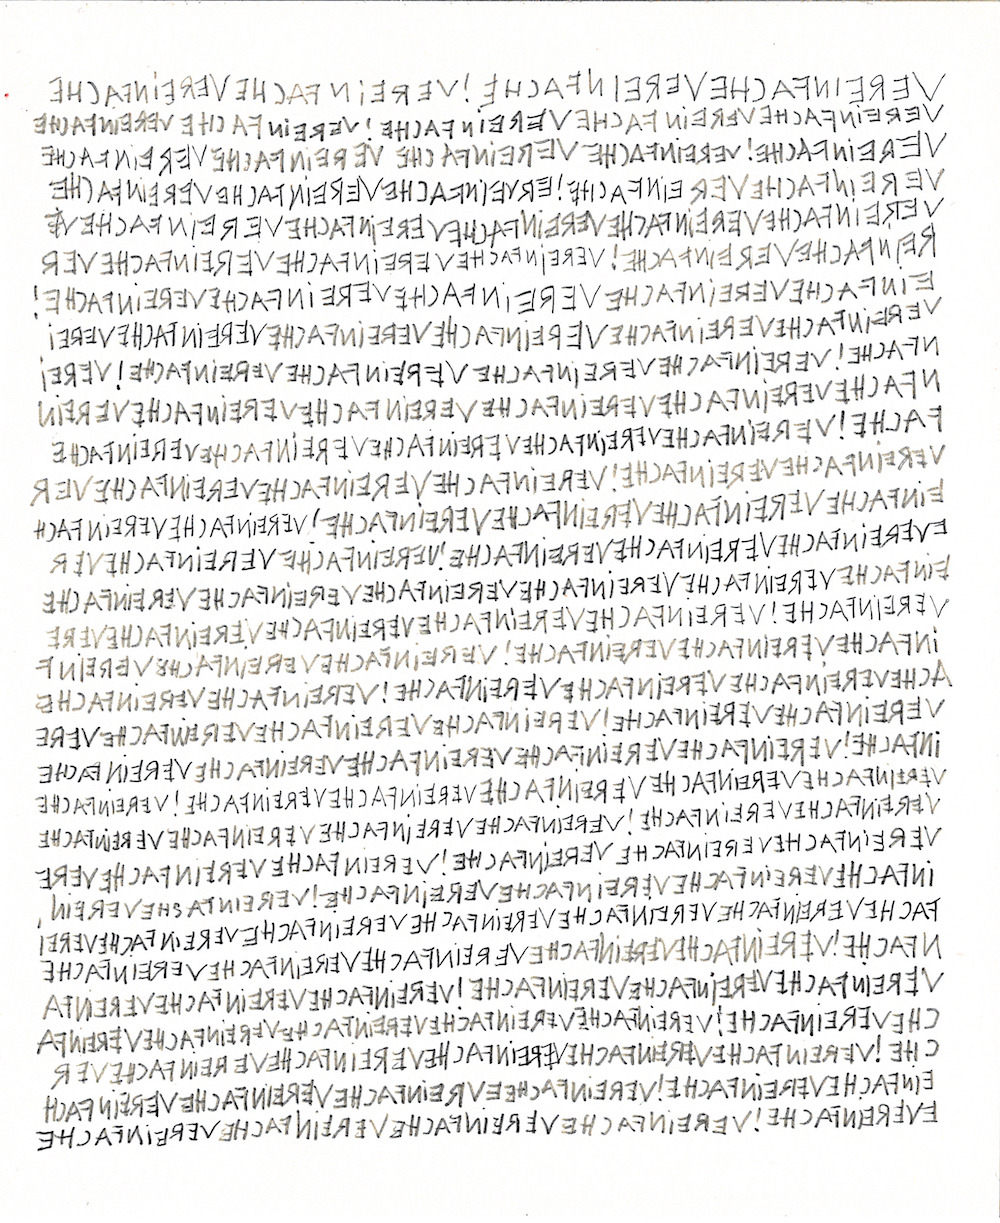 VEREINFACHEVEREINFACHE!VEREINFACHEVEREINFACHE
VEREINFACHEVEREINFACHEVEREINFACHE!VEREINFACHEVEREINFACHE
VEREINFACHE!VEREINFACHEVEREINFACHEVEREINFACHEVEREINFACHE
VEREINFACHEVEREINFACHE!EREVEINFACHEVEREINFACHEVEREINFACHE
VEREINFACHEVEREINFACHEVEREINFACHEVEREINFACHEVEREINFACHEVE
REINFACHEVEREINFACHE!VEREINFACHEVEREINFACHEVEREINFACHEVER
EINFACHEVEREINFACHEVEREINFACHEVEREINFACHEVEREINFACHE!
VEREINFACHEVEREINFACHEVEREINFACHEVEREINFACHEVEREINFACHEVEREI
NFACHE!VEREINFACHEVEREINFACHEVEREINFACHEVEREINFACHE!VEREI
NFACHEVEREINFACHEVEREINFACHEVEREINFACHEVEREINFACHEVEREIN
FACHE!VEREINFACHEVEREINFACHEVEREINFACHEVEREINFACHEVEREINFACHE
VEREINFACHEVEREINFACHE!VEREINFACHEVEREINFACHEVEREINFACHEVER
EINFACHEVEREINFACHEVEREINFACHEVEREINFACHE!VEREINFACHEVEREINFACH
EVEREINFACHEVEREINFACHEVEREINFACHE!VEREINFACHEVEREINFACHEVER
EINFACHEVEREINFACHEVEREINFACHEVEREINFACHEVEREINFACHE
VEREINFACHE!VEREINFACHEVEREINFACHEVEREINFACHEVEREINFACHEVERE
INFACHEVEREINFACHEVEREINFACHE!VEREINFACHEVEREINFACHEVEREINF
ACHEVEREINFACHEVEREINFACHEVEREINFACHE!VEREINFACHEVEREINFACHE
VEREINFACHEVEREINFACHE!VEREINFACHEVEREINFACHEVEREINFACHEVERE
INFACHE!VEREINFACHEVEREINFACHEVEREINFACHEVEREINFACHEVEREINFACHE
VEREINFACHEVEREINFACHEVEREINFACHEVEREINFACHE!VEREINFACHE
VEREINFACHEVEREINFACHE!VEREINFACHEVEREINFACHEVEREINFACHEVEREINFACHE
VEREINFACHEVEREINFACHEVEREINFACHE!VEREINFACHEVEREINFACHEVERE
INFACHEVEREINFACHEVEREINFACHEVEREINFACHE!VEREINFACHEVEREIN
FACHEVEREINFACHEVEREINFACHEVEREINFACHEVEREINFACHEVEREINFACHEVEREI
NFACHE!VEREINFACHEVEREINFACHEVEREINFACHEVEREINFACHEVEREINFACHE
VEREINFACHEVEREINFACHEVEREINFACHE!VEREINFACHEVEREINFACHEVERENFA
CHEVEREINFACHE!VEREINFACHEVEREINFACHEVEREINFACHEVEREINFACHEVEREINFA
CHE!VEREINFACHEVEREINFACHEVEREINFACHEVEREINFACHEVEREINFACHEVER
EINFACHEVEREINFACHE!VEREINFACHEEVEREINFACHEVEREINFACHEVEREINFACH
EVEREINFACHE!VEREINFACHEVEREINFACHEVEREINFACHEVEREINFACHE